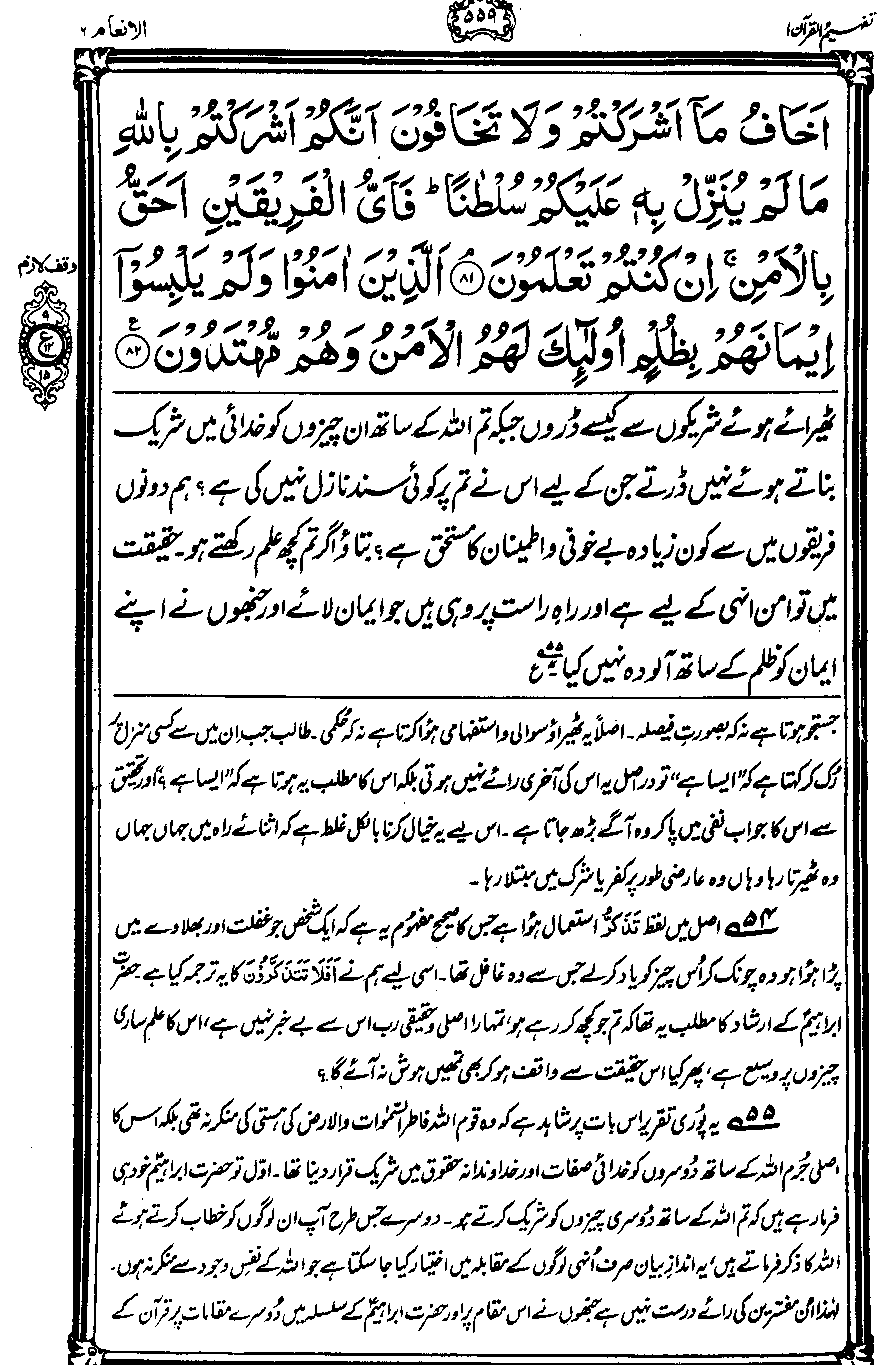 تفہیم القرآن ۱
۵۵۹
الانعام ۶
اَخَافُ مَاۤ اَشْرَكْتُمْ وَلَا تَخَافُوْنَ اَنَّكُمْ اَشْرَكْتُمْ بِاللّٰهِ
مَا لَمْ يُنَزِّلْ بِهٖ عَلَيْكُمْ سُلْطٰنًا ؕ فَاَىُّ الْفَرِيْقَيْنِ اَحَقُّ
بِالْاَمْنِ ۚ اِنْ كُنْتُمْ تَعْلَمُوْنَ ۘ﴿۸۱﴾ اَلَّذِيْنَ اٰمَنُوْا وَلَمْ يَلْبِسُوْۤا
اِيْمَانَهُمْ بِظُلْمٍ اُولٰٓئِكَ لَهُمُ الْاَمْنُ وَهُمْ مُّهْتَدُوْنَ ﴿۸۲﴾ ع
وقف لازم
۹
ع
۱۵
ٹھیرائے ہوئے شریکوں سے کیسے ڈروں جبکہ تم اللہ کے ساتھ ان چیزوں کو خدائی میں شریک
بناتے ہوئے نہیں ڈرتے جن کے لیے اس نے تم پر کوئی سند نازل نہیں کی ہے؟ ہم دونوں
فریقوں میں سے کون زیادہ بے خوفی و اطمینان کا مستحق ہے؟ بتاؤ اگر تم کچھ علم رکھتے ہو۔ حقیقت
میں تو امن انہی کے لیے ہے اور راہِ راست پر وہی ہیں جو ایمان لائے اور جنھوں نے اپنے
ایمان کو ظلم کے ساتھ آلودہ نہیں کیا ۵۵؎ ع
جستجو ہوتا ہے نہ کہ بصورتِ فیصلہ۔ اصلاً یہ ٹھیراؤ سوالی و استفہامی ہوا کرتا ہے نہ کہ حُکمی۔ طالب جب ان میں سے کسی منزل پر
رُک کر کہتا ہے کہ ”ایسا ہے“ تو دراصل یہ اس کی آخری رائے نہیں ہوتی بلکہ اس کا مطلب یہ ہوتا ہے کہ ”ایسا ہے؟“ اور تحقیق
سے اس کا جواب نفی میں پا کر وہ آگے بڑھ جاتا ہے۔ اس لیے یہ خیال کرنا بالکل غلط ہے کہ اثنائے راہ میں جہاں جہاں
وہ ٹھیرتا رہا وہاں وہ عارضی طور پر کفر یا شرک میں مبتلا رہا۔
۵۴؎ اصل میں لفظ تَذَکُّرْ استعمال ہوا ہے جس کا صحیح مفہُوم یہ ہے کہ ایک شخص جو غفلت اور بھلاوے میں
پڑا ہوا ہو وہ چونک کر اُس چیز کو یاد کرلے جس سے وہ غافل تھا۔ اسی لیے ہم نے اَفَلَا تَتَذَکَّرُوْنَ کا یہ ترجمہ کیا ہے۔ حضرت
ابراہیمؑ کے ارشاد کا مطلب یہ تھا کہ تم جو کچھ کر رہے ہو، تمہارا اصلی و حقیقی رب اس سے بے خبر نہیں ہے، اس کا علم ساری
چیزوں پر وسیع ہے، پھر کیا اس حقیقت سے واقف ہو کر بھی تمھیں ہوش نہ آئے گا؟
۵۵؎ یہ پُوری تقریر اس بات پر شاہد ہے کہ وہ قوم اللہ فاطر السّمٰوات والارض کی ہستی کی منکر نہ تھی بلکہ اس کا
اصلی جُرم اللہ کے ساتھ دُوسروں کو خدائی صفات اور خداوندانہ حقوق میں شریک قرار دینا تھا۔ اوّل تو حضرت ابراہیمؑ خود ہی
فرما رہے ہیں کہ تم اللہ کے ساتھ دُوسری چیزوں کو شریک کرتے ہو۔ دوسرے جس طرح آپ ان لوگوں کو خطاب کرتے ہوئے
اللہ کا ذکر فرماتے ہیں، یہ اندازِ بیان صرف اُنہی لوگوں کے مقابلہ میں اختیار کیا جا سکتا ہے جو اللہ کے نفسِ وجود سے منکر نہ ہوں۔
لہٰذا اُن مفسّرین کی رائے درست نہیں ہے جنھوں نے اس مقام پر اور حضرت ابراہیمؑ کے سلسلہ میں دُوسرے مقامات پر قرآن کے